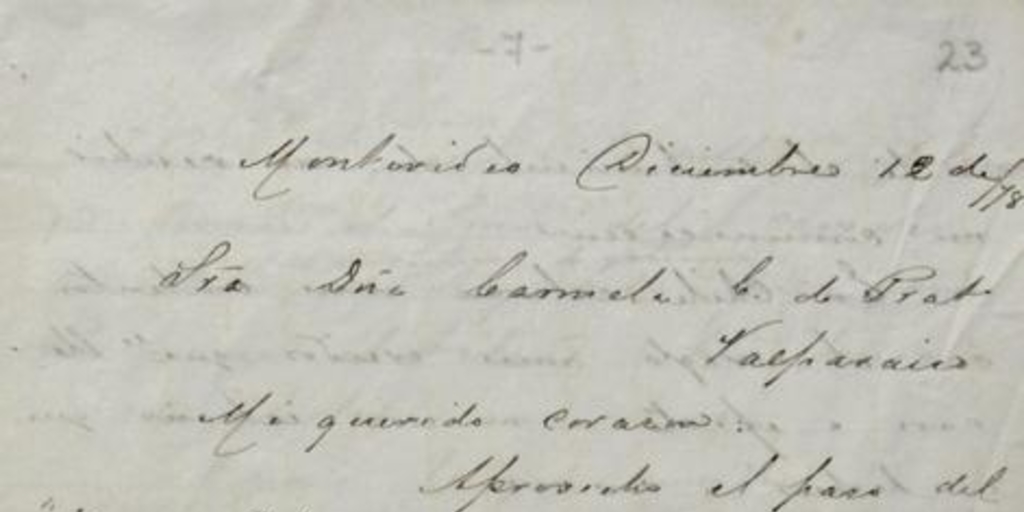 23
Montevideo Diciembre 12 de/78
Sra Dña Carmela C. de Prat
Valparaiso
Mi querido corazon:
Aprovecho el paso del